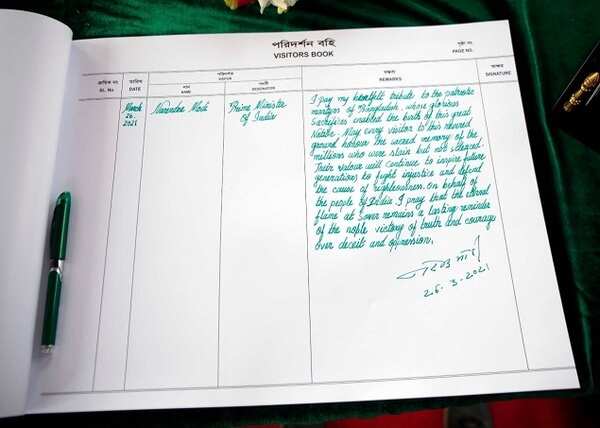 পরিদর্শন বহি
VISITORS BOOK
পৃষ্ঠা নং
PAGE NO.
ক্রমিক নং
SL. No
তারিখ
DATE
পরিদর্শক
VISITOR
নাম
NAME
পদবী
DESIGNATION
মন্তব্য
REMARKS
স্বাক্ষর
SIGNATURE
March
26
2021
Narendra Modi
Prime Minister
of India
I pay my heartfelt tribute to the patriotic
martyrs of Bangladesh, whose glorious
sacrifices enabled the birth of this great
Nation. May every visitor to this revered
ground honour the sacred memory of the
millions who were slain but not silenced.
Their valour will continue to inspire future
generations to fight injustice and defend
the cause of righteousness. On behalf of
the people of India I pray that the eternal
flame at Savar remains a lasting reminder
of the noble victory of truth and courage
over deceit and oppression.
26.3.2021